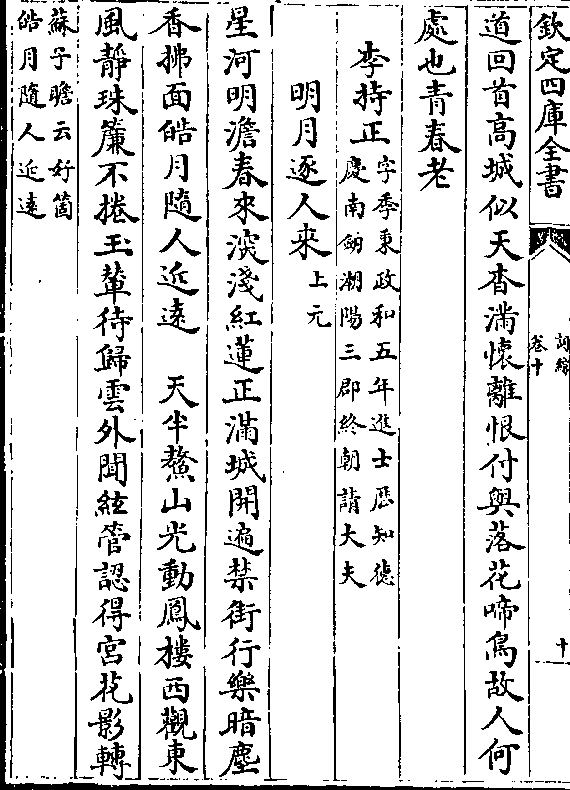 欽定四庫全書
詞綜
卷十
十
道回首高城似天杳滿懷離恨付與落花啼鳥故人何
處也青春老
李持正
字季秉政和五年進士歷知德
慶南劍潮陽三郡終朝請大夫
明月逐人來
上元
星河明澹春來深淺紅蓮正滿城開遍禁街行樂暗塵
香拂面皓月隨人近遠　天半鰲山光動鳳樓西觀東
風靜珠簾不捲玉輦待歸雲外聞絃管認得宮花影轉
蘇子瞻云好箇
皓月隨人近遠